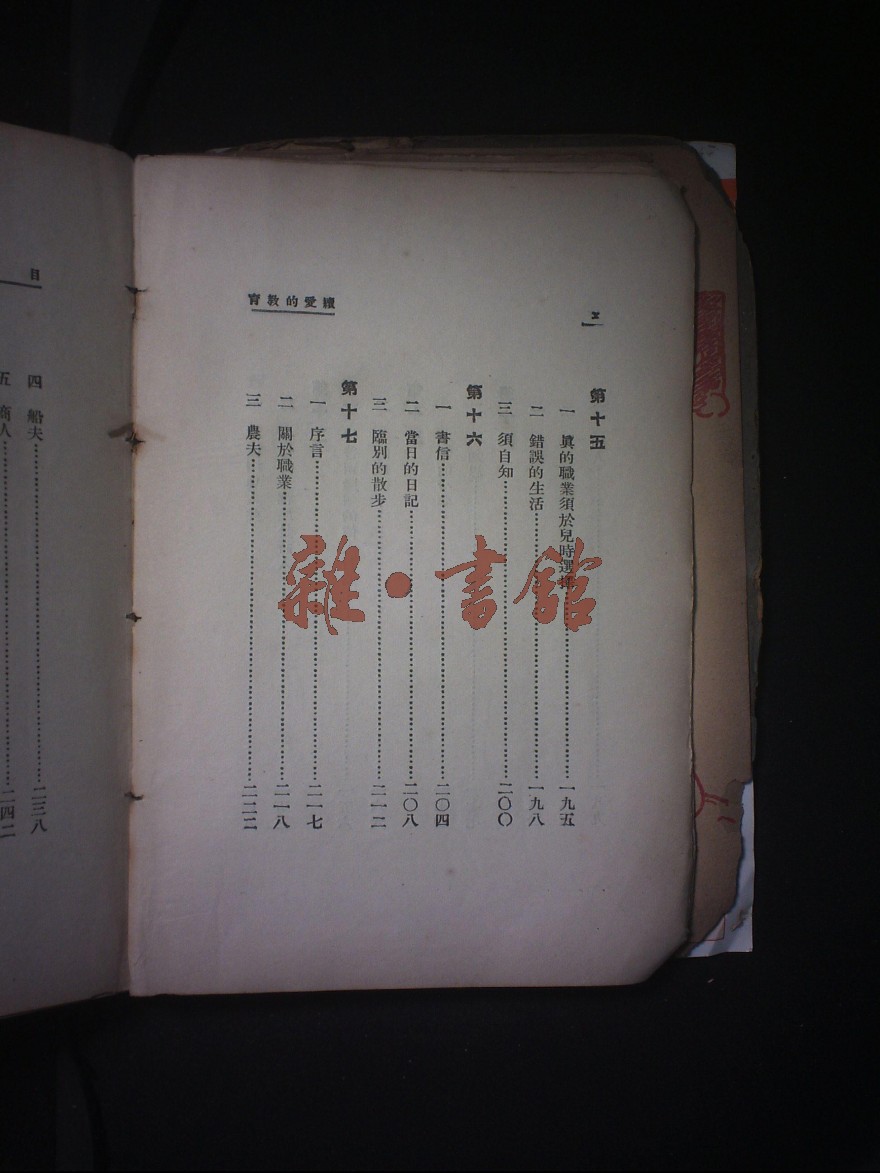 續愛的教育
第十五
一 眞的職業須於兒時選擇……一九五
二 錯誤的生活……一九八
三 須自知……二〇〇
第十六
一 書信……二〇四
二 當日的日記……二〇八
三 臨別的散步……二一二
第十七
一 序言……二一七
二 關於職業……二一八
三 農夫……二二二
目
四 船夫……二三八
五 商人……二四二
雜·書館